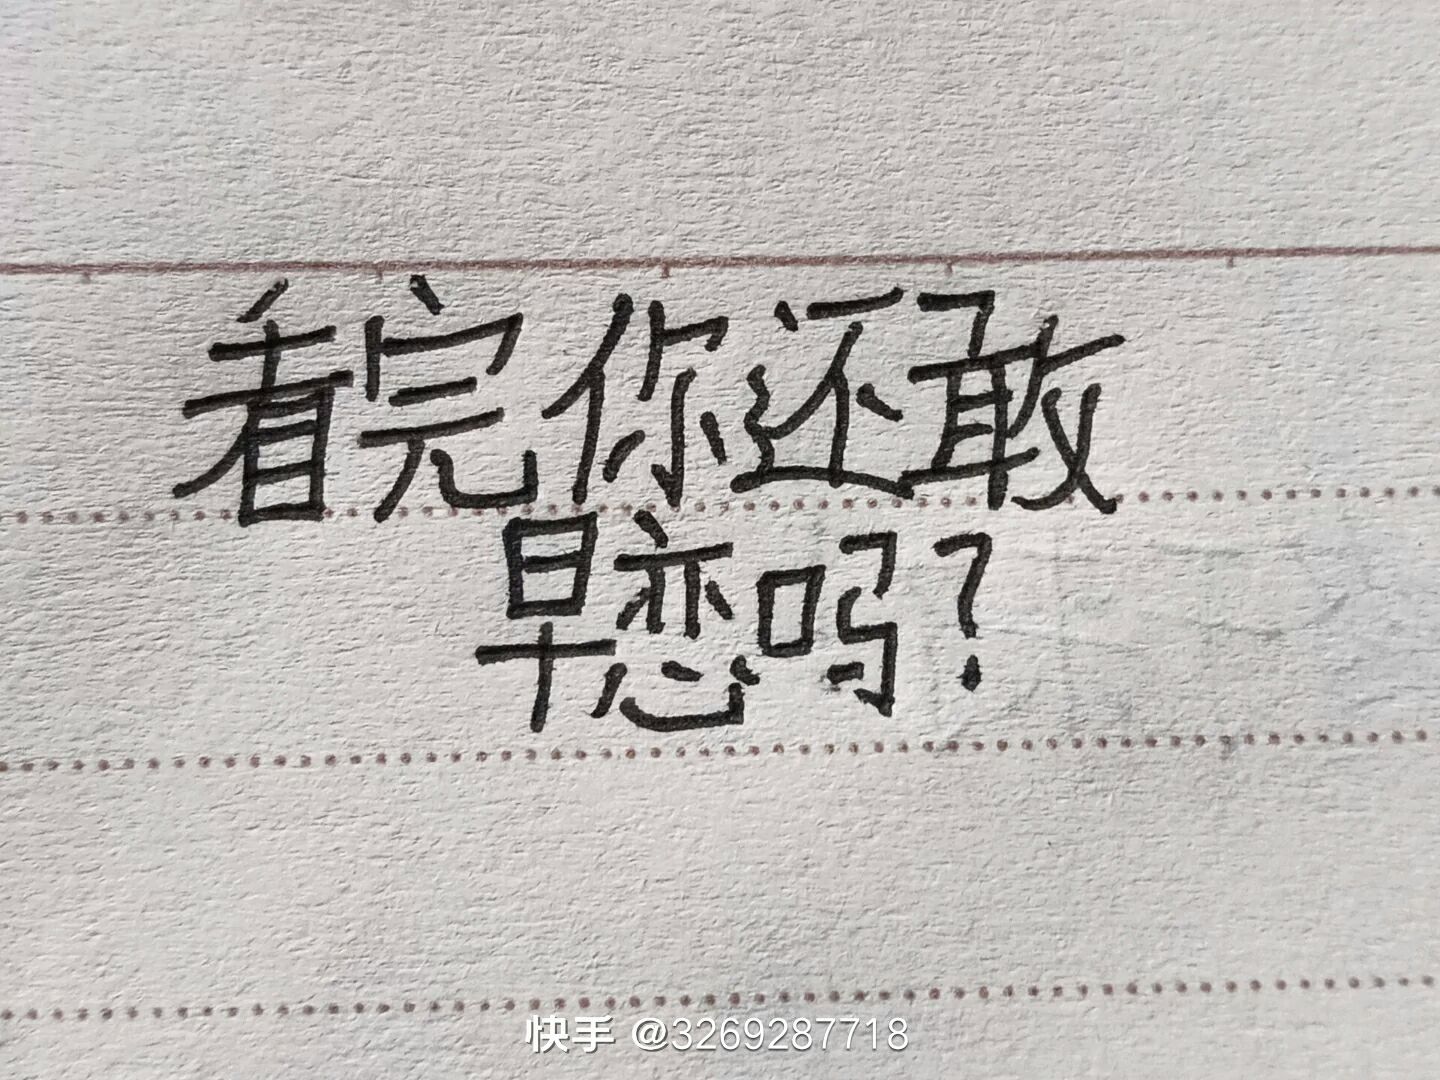 看完你还敢
早恋吗?
快手 @3269287718